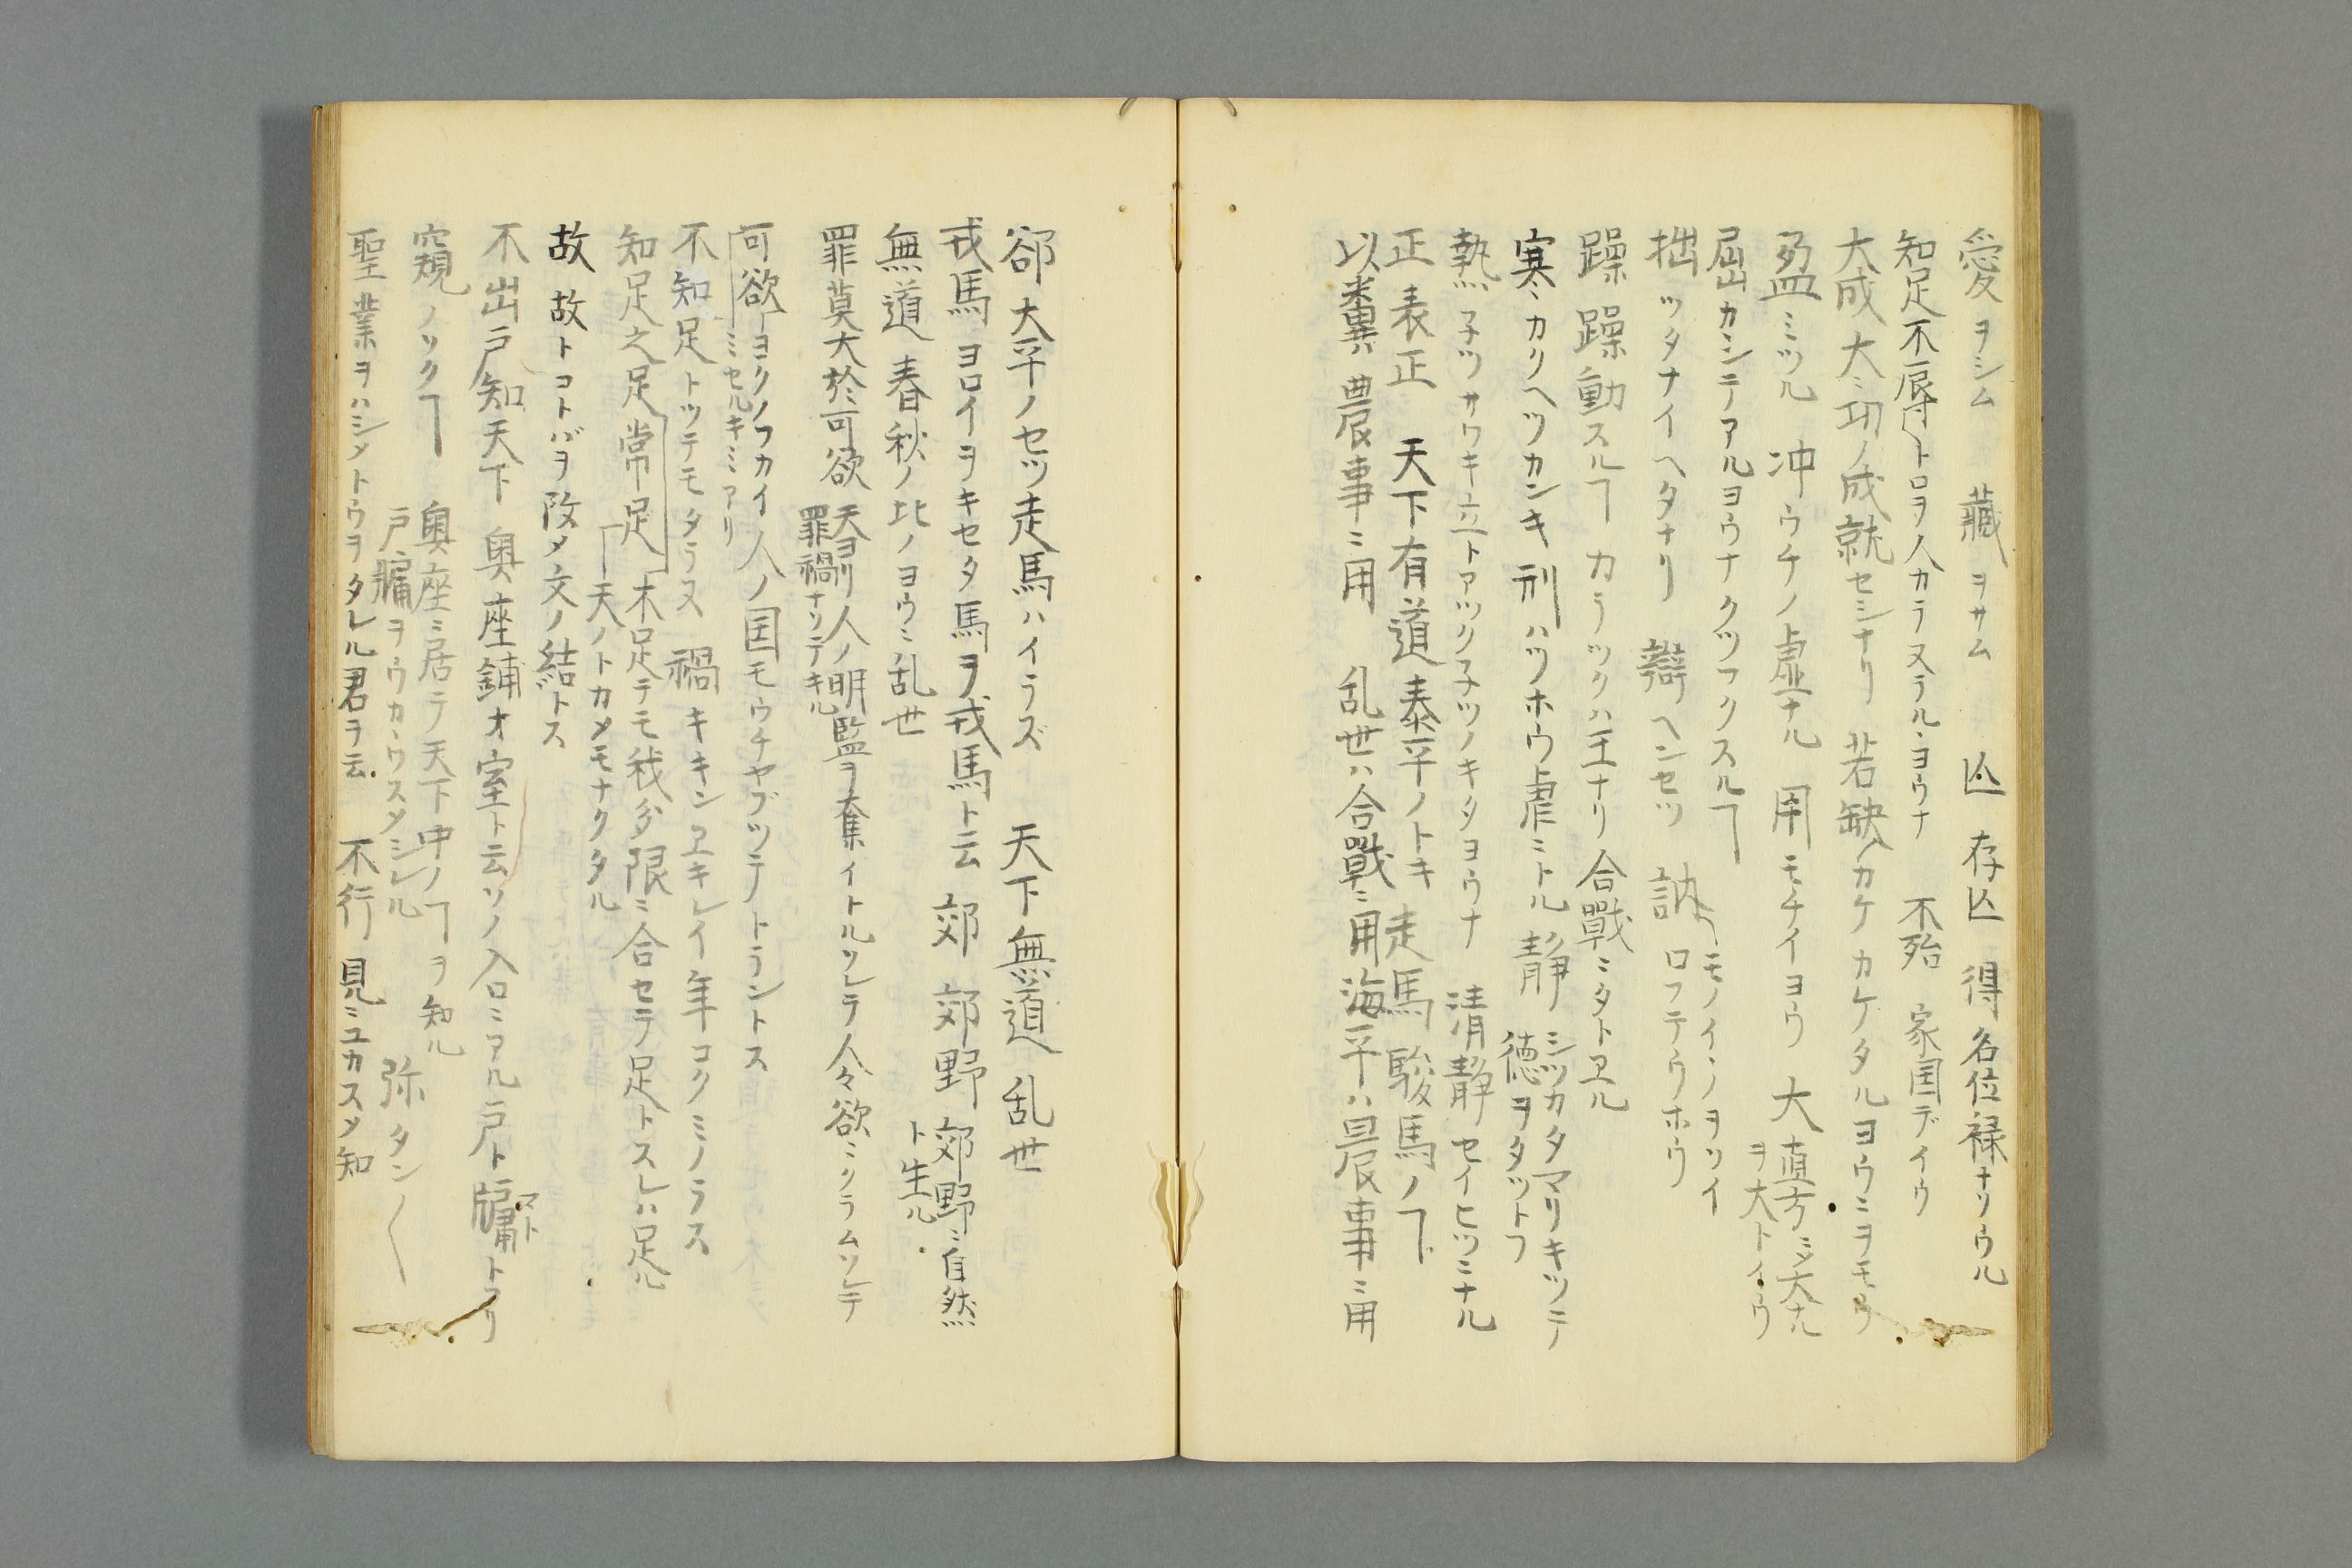 愛ヲシム 藏ヲサム 亾存亾 得名位禄ナリウル
知足不辱トロヲ人カラヌラルヽヨウナ 不殆 家国デイウ
大成大ニ功ノ成就セシナリ 若缺カケカケタルヨウニヲモウ
盈ミツル 冲ウチノ虚ナル 用モチイヨウ 大直方ニメ大ナル
ヲ大トイウ
屈カヽンテアルヨウナクツフクスルヿ
拙ツタナイヘタナリ 辯ヘンセツ 訥モノイヽノヲソイ
ロフテウホウ
躁躁動スルヿカラツクハ王ナリ合戰ニタトヱル
寒カリヘツカンキ刑ハツホウ虐ニトル 静シツカタマリキツテ
徳ヲタツトフ
熱子ツサウキ立トアツク子ツノキタヨウナ 清靜セイヒツニナル
正表正 天下有道泰平ノトキ 走馬駿馬ノヿ
以糞ハ農事ニ用 乱世ハ合戰ニ用海平ハ農事ニ用
郤大平ノセツ走馬ハイラズ 天下無道乱世
戎馬ヨロイヲキセタ馬ヲ戎馬ト云 郊郊野郊野ニ自然
ト生ル
無道春秋ノ比ノヨウニ乱世
罪莫大於可欲 天ヨリ人ノ明監ヲ奪イトルソレテ人々欲ニクラムソレテ
罪禍ナソテキル
可欲ヨクノフカイ人ノ国モウチヤブツテトラントス
ミセルキミアリ
不知足トツテモタラヌ 禍キキンヱキレイ年コクミノラス
知足之足常足 不足テモ我分限ニ合セテ足トスレハ足ル
天ノトカメモナクタル
故故トコトバヲ改メ文ノ結トス
不出戸知天下奥座鋪オ室ト云ソノ入口ニアル戸ト牖マトトアリ
窺ノソクヿ 奥座ニ居テ天下中ノヿヲ知ル
戸牖ヲウカヽウスタシレル 弥タン〱
聖業ヲハシメトウヲタレル君ヲ云 不行見ニユカスメ知